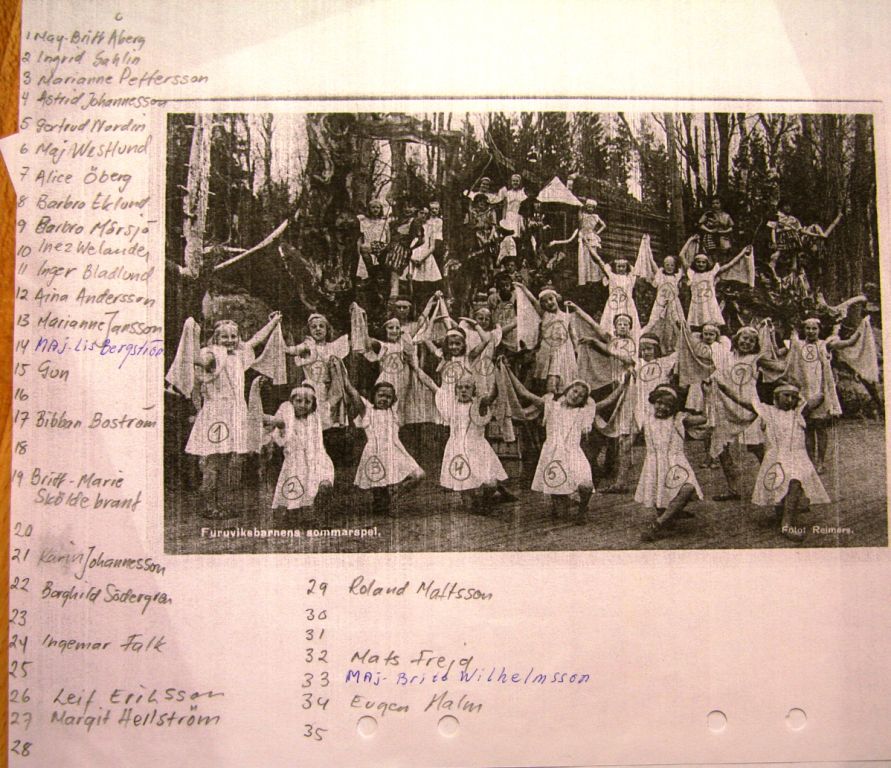 1 May-Britt Åberg
2 Ingrid Sahlin
3 Marianne Pettersson
4 Astrid Johannesson
5 Gertrud Nordin
6 Maj Westlund
7 Alice Öberg
8 Barbro Eklund
9 Barbro Mörsjö
10 Inez Welander
11 Inger Bladlund
12 Aina Andersson
13 Marianne Jansson
14 MAj-Lis Bergström
15 Gun
16
17 Bibban Boström
18
19 Britt-Marie
Sköldebrant
20
21 Karin Johannesson
22 Borghild Södergren
23
24 Ingemar Falk
25
26 Leif Eriksson
27 Margit Hellström
28
29 Roland Mattsson
30
31
32 Mats Frejd
33 MAj-Britt Wilhelmsson
34 Eugen Halm
35
1
2
3
4
5
6
7
8
Furuviksbarnens sommarspel.
Foto: Reimers.